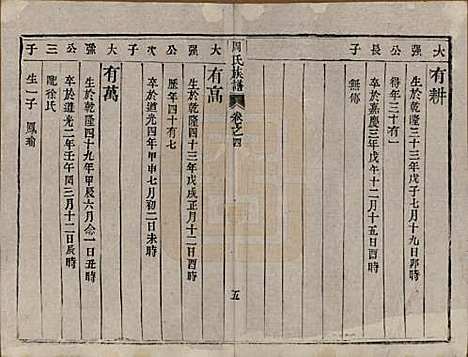 大强公長子
有耕
生於乾隆三十三年戊子七月十九日卯時
得年三十有一
卒於嘉慶三年戊午十二月十二日酉時
無傳
周氏族譜
卷之四
五
大强公次子
有高
生於乾隆四十三年戊戌正月十二日酉時
歷年四十有七
卒於道光四年甲申七月初二日未時
大强公三子
有萬
生於乾隆四十九年甲辰六月念一日丑時
卒於道光二年壬午閏三月十二日辰時
配徐氏
生一子 鳳瑜